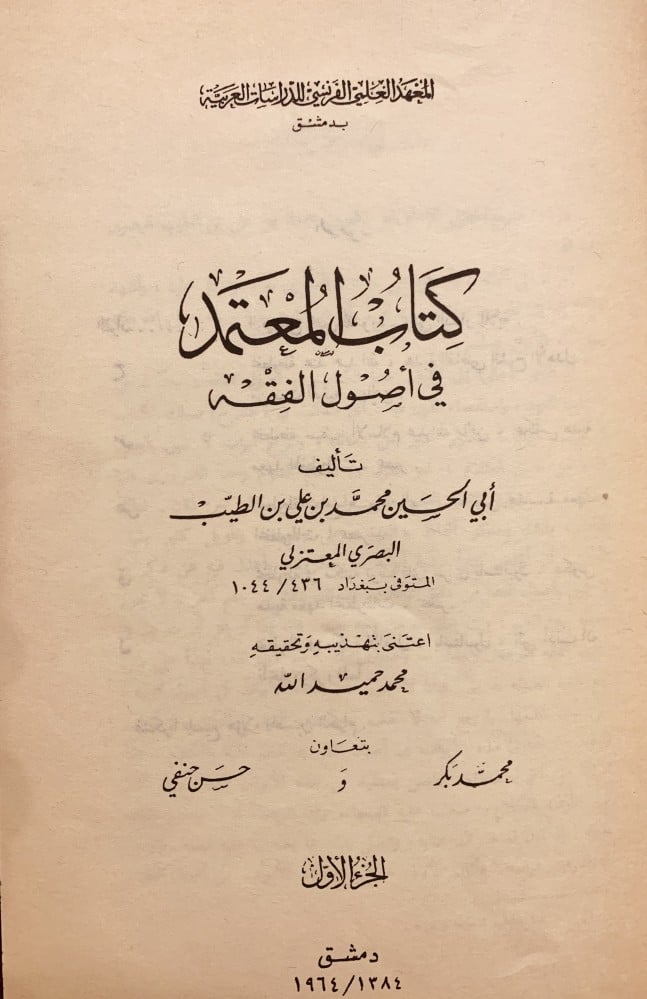 المَعْهَد العِلميّ الفَرنسيّ للدّراسَات العَربيَّة
بدمشق
كِتَابُ المُعْتَمَد
في أصُول الفِقْه
تأليف
أبي الحسَين محمَّد بن علي بن الطيّب
البصري المعتزلي
المتوفى ببغداد ٤٣٦/١٠٤٤
اعتنى بتهذيبه وتحقيقه
محمد حميد الله
بتعاون
محمَّد بكر و حسَن حنفي
الجزء الأوّل
دمشق
١٣٨٤/١٩٦٤